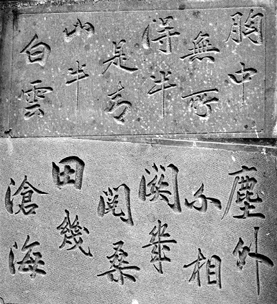 胸中
無所
得半
是青
山半
白雲
塵外
不相
関幾
閲桑
田幾
滄海